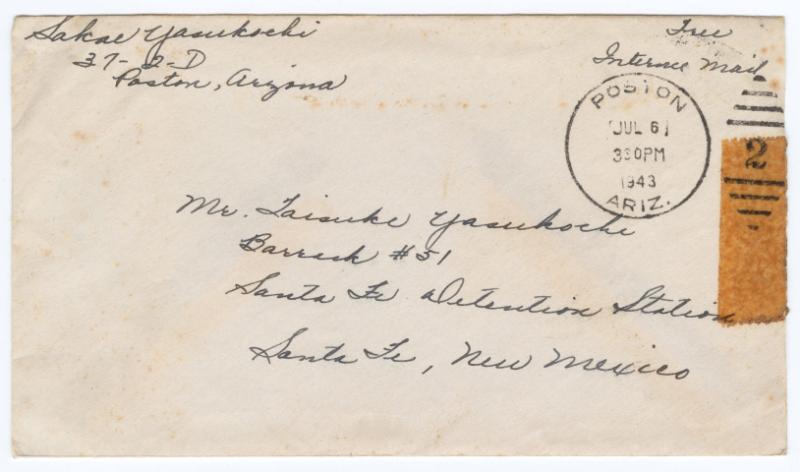 Sakae Yasukochi
37-2-D
Poston, Arizona
Free
Internee Mail
POSTON
JUL 6
3 30 PM
1943
ARIZ.
2
Mr. Taisuke Yasukochi
Barrack #51
Santa Fe Detention Station
Santa Fe, New Mexico